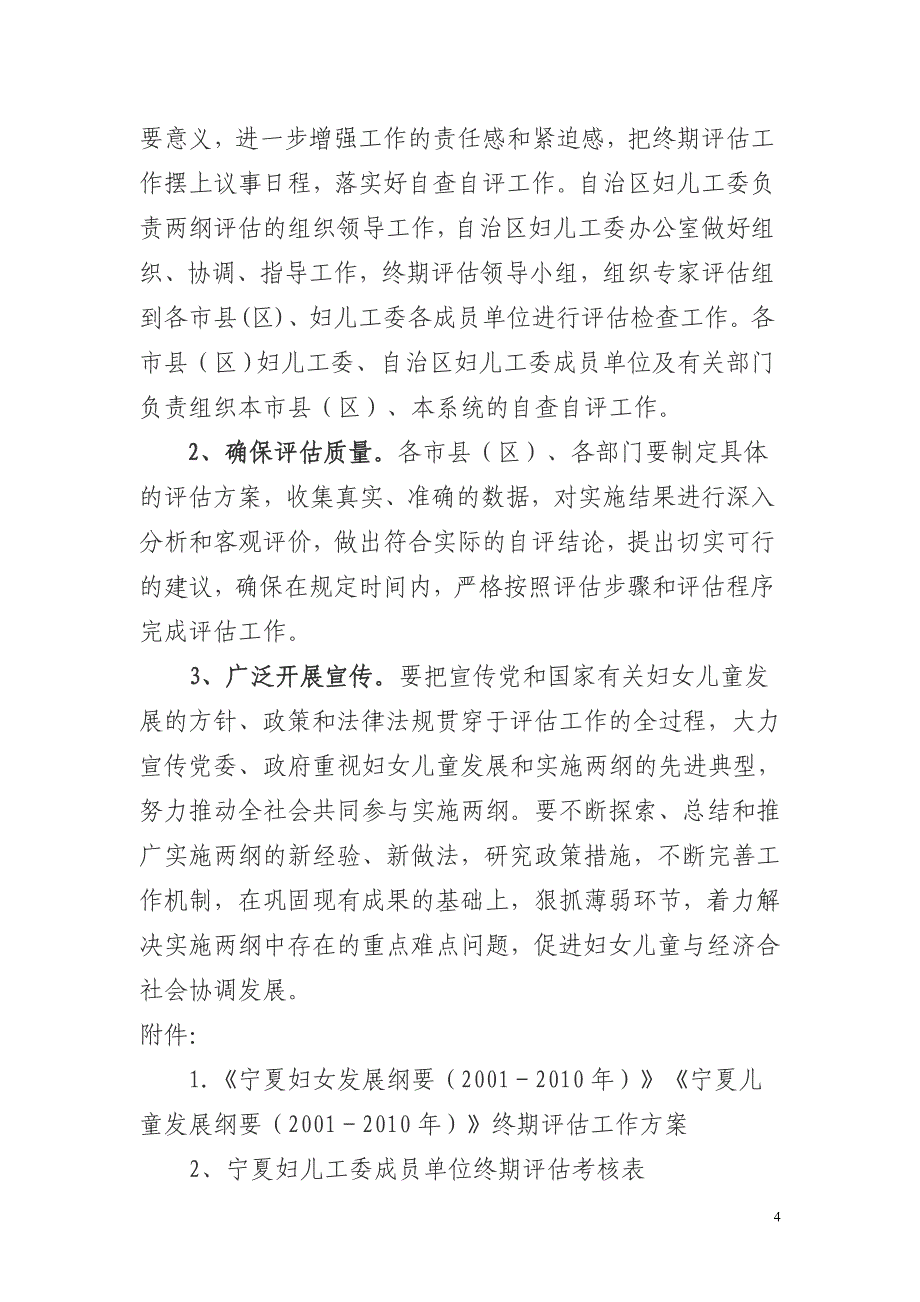 要意义，进一步增强工作的责任感和紧迫感，把终期评估工
作摆上议事日程，落实好自查自评工作。自治区妇儿工委负
责两纲评估的组织领导工作，自治区妇儿工委办公室做好组
织、协调、指导工作，终期评估领导小组，组织专家评估组
到各市县(区)、妇儿工委各成员单位进行评估检查工作。各
市县（区)妇儿工委、自治区妇儿工委成员单位及有关部门
负责组织本市县（区）、本系统的自查自评工作。
2、确保评估质量。各市县（区）、各部门要制定具体
的评估方案，收集真实、准确的数据，对实施结果进行深入
分析和客观评价，做出符合实际的自评结论，提出切实可行
的建议，确保在规定时间内，严格按照评估步骤和评估程序
完成评估工作。
3、广泛开展宣传。要把宣传党和国家有关妇女儿童发
展的方针、政策和法律法规贯穿于评估工作的全过程，大力
宣传党委、政府重视妇女儿童发展和实施两纲的先进典型，
努力推动全社会共同参与实施两纲。要不断探索、总结和推
广实施两纲的新经验、新做法，研究政策措施，不断完善工
作机制，在巩固现有成果的基础上，狠抓薄弱环节，着力解
决实施两纲中存在的重点难点问题，促进妇女儿童与经济合
社会协调发展。
附件：
1.《宁夏妇女发展纲要（2001－2010年）》《宁夏儿
童发展纲要（2001－2010年）》终期评估工作方案
2、宁夏妇儿工委成员单位终期评估考核表
4